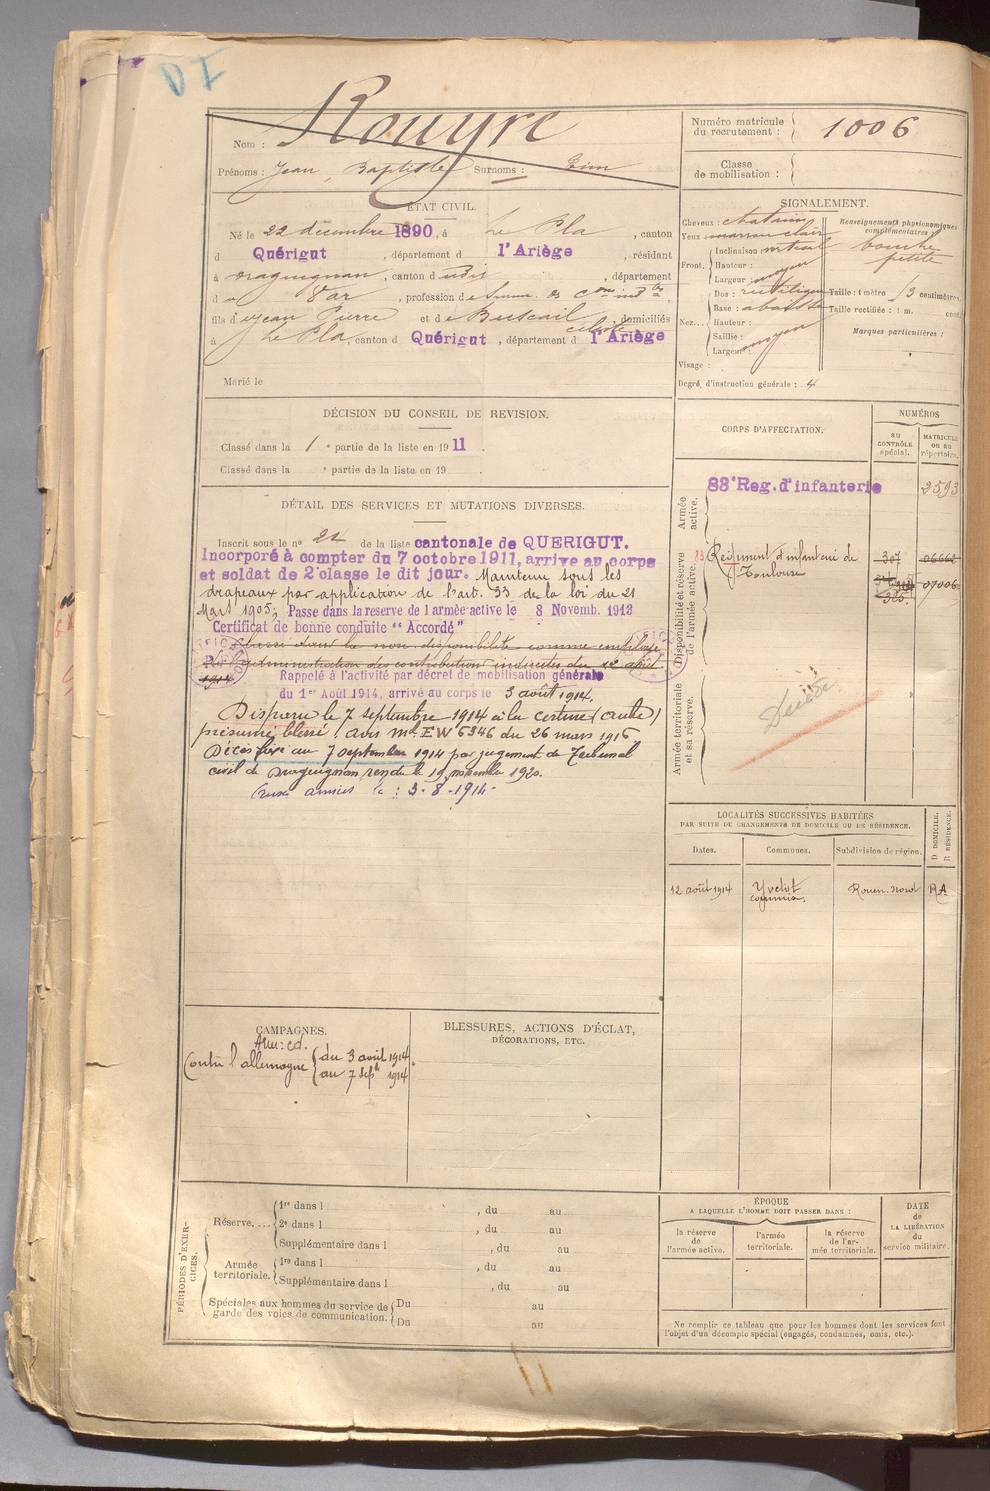 Nom : Rouyre
Prénoms : Jean, Baptiste Surnoms :
Numéro matricule du recrutement : 1006
Classe de mobilisation :
ÉTAT CIVIL.
Né le 22 décembre 1890, à Le Pla, canton
d Quérigut, département d l'Ariège, résidant
à Draguignan, canton d udit, département
d u Var, profession de
fils de Jean Pierre et de Buscail, domiciliés
à Le Pla, canton d Quérigut, département d l'Ariège
Marié le
SIGNALEMENT.
Cheveux : chatains
Yeux marron clair
Front. Inclinaison
Hauteur :
Largeur : moyen
Nez... Dos : rectiligne
Base : abaissée
Hauteur :
Saillie :
Largeur : moyen
Visage :
Renseignements physionomiques complémentaires :
bouche
petite
Taille : 1 mètre 3 centimètres.
Taille rectifiée : 1 m. cent.
Marques particulières :
Degré d'instruction générale : 4
DÉCISION DU CONSEIL DE REVISION.
Classé dans la 1 e partie de la liste en 1911.
Classé dans la e partie de la liste en 19 .
DÉTAIL DES SERVICES ET MUTATIONS DIVERSES.
Inscrit sous le n° 24 de la liste cantonale de QUERIGUT.
Incorporé à compter du 7 octobre 1911, arrive au corps
et soldat de 2e classe le dit jour. Maintenu sous les
drapeaux par application de l'art. 33 de la loi du 21
Mars 1905; Passe dans la reserve de l armée active le 8 Novemb. 1913
Certificat de bonne conduite "Accordé"
Classé dans la non disponibilité comme employé
administration des contributions indirectes du 12 avril
1914
Rappelé à l'activité par décret de mobilisation générale
du 1er Août 1914, arrivé au corps le 3 août 1914.
Disparu le 7 septembre 1914 à la Certine (Aube)
présumé blessé (avis mel EW 6346 du 26 mars 1916
Décès fixé au 7 septembre 1914 par jugement du Tribunal
civil de Draguignan rendu le 19 novembre 1920.
armées le : 3-8-1914-
CORPS D'AFFECTATION.
NUMÉROS
AU CONTRÔLE spécial.
MATRICULE OU AU répertoire.
Armée active.
88e Reg. d'infanterie 2593
Disponibilité et réserve de l'armée active.
83 Régiment d'infanterie de Toulouse 307
07006
Armée territoriale et sa réserve.
Décédé
LOCALITÉS SUCCESSIVES HABITÉES
PAR SUITE DE CHANGEMENTS DE DOMICILE OU DE RÉSIDENCE.
Dates. Communes. Subdivision de région. D DOMICILE. R RÉSIDENCE.
12 août 1914 Yvetot Rouen-nord RA
CAMPAGNES.
Contre l'allemagne du 3 août 1914
au 7 septe 1914
BLESSURES, ACTIONS D'ÉCLAT,
DÉCORATIONS, ETC.
PÉRIODES D'EXERCICES.
Réserve.... 1re dans l , du au
2e dans l , du au
Supplémentaire dans l , du au
Armée territoriale. 1re dans l , du au
Supplémentaire dans l , du au
Spéciales aux hommes du service de garde des voies de communication. Du au
Du au
ÉPOQUE
A LAQUELLE L'HOMME DOIT PASSER DANS :
la réserve de l'armée active.
l'armée territoriale.
la réserve de l'armée territoriale.
DATE de LA LIBÉRATION du service militaire.
Ne remplir ce tableau que pour les hommes dont les services font
l'objet d'un décompte spécial (engagés, condamnés, omis, etc.).